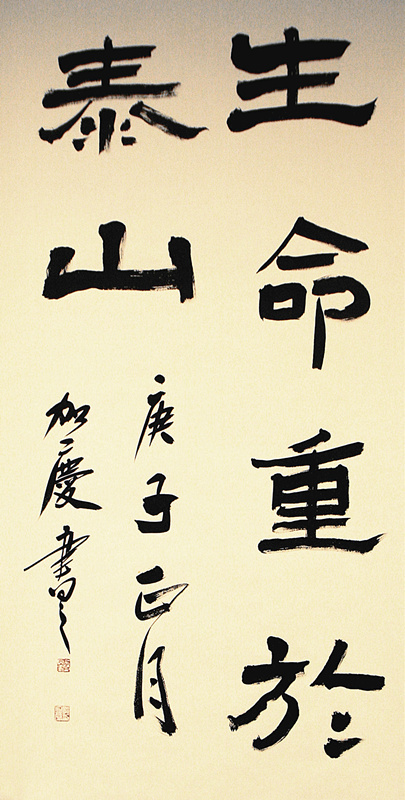 生命重於
泰山
庚子正月
加慶書